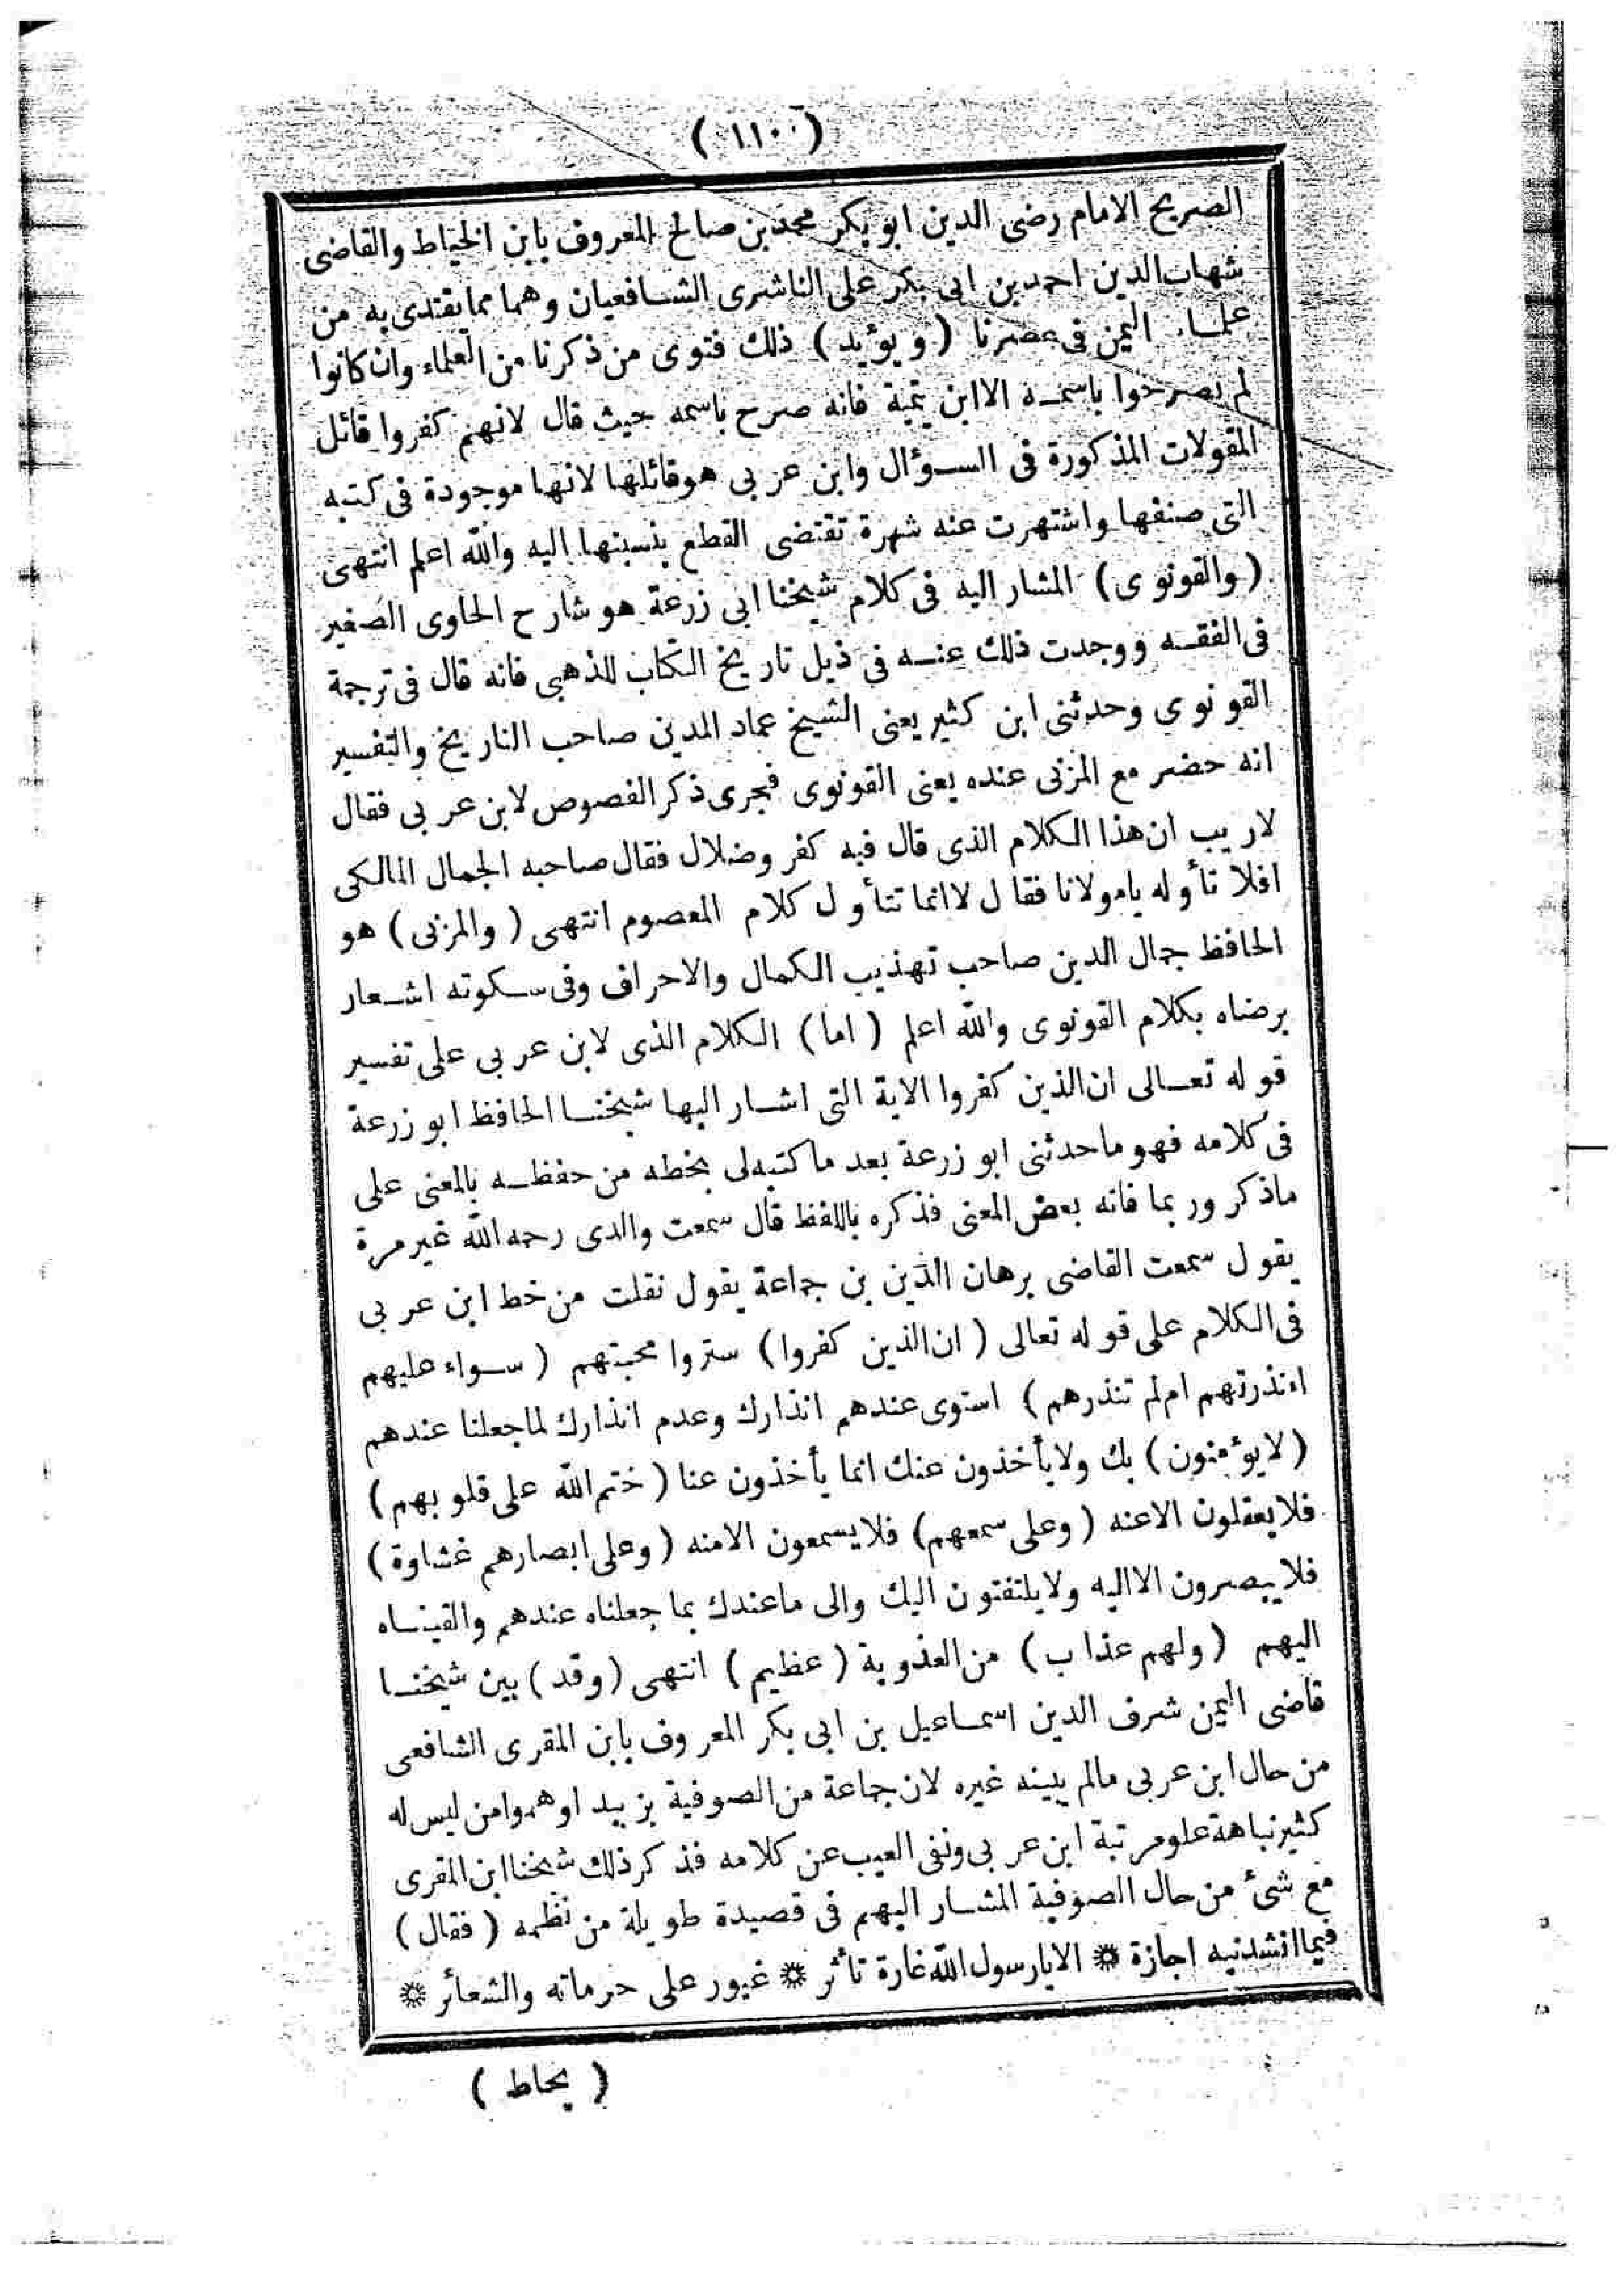 (١١٠)
الصريح الامام رضى الدين ابو بكر محمد بن صالح المعروف بابن الخياط والقاضى
شهاب الدين احمد بن ابى بكر على الناشرى الشافعيان وهما مما يقتدى به من
علماء اليمن فى عصرنا (ويؤيد) ذلك فتوى من ذكرنا من العلماء وان كانوا
لم يصرحوا باسمه الا ابن تيمية فانه صرح باسمه حيث قال لانهم كفروا قائل
المقولات المذكورة فى السؤال وابن عربى هو قائلها لانها موجودة فى كتبه
التى صنفها واشتهرت عنه شهرة تقتضى القطع بنسبتها اليه والله اعلم انتهى
(والقونوى) المشار اليه فى كلام شيخنا ابى زرعة هو شارح الحاوى الصغير
فى الفقه ووجدت ذلك عنه فى ذيل تاريخ الكتاب للذهبى فانه قال فى ترجمة
القونوى وحدثنى ابن كثير يعنى الشيخ عماد الدين صاحب التاريخ والتفسير
انه حضر مع المزنى عنده يعنى القونوى فجرى ذكر الفصوص لابن عربى فقال
لاريب ان هذا الكلام الذى قال فيه كفر وضلال فقال صاحبه الجمال المالكى
افلا تأوله يامولانا فقال لا انما نتأول كلام المعصوم انتهى (والمزنى) هو
الحافظ جمال الدين صاحب تهذيب الكمال والاحراف وفى سكوته اشعار
برضاه بكلام القونوى والله اعلم (اما) الكلام الذى لابن عربى على تفسير
قوله تعالى ان الذين كفروا الاية التى اشار اليها شيخنا الحافظ ابو زرعة
فى كلامه فهو ما حدثنى ابو زرعة بعد ما كتبه لى بخطه من حفظه بالمعنى على
ماذكر وربما فاته بعض المعنى فذكره باللفظ قال سمعت والدى رحمه الله غير مرة
يقول سمعت القاضى برهان الدين بن جماعة يقول نقلت من خط ابن عربى
فى الكلام على قوله تعالى (ان الذين كفروا) ستروا محبتهم (سواء عليهم
اءنذرتهم ام لم تنذرهم) استوى عندهم انذارك وعدم انذارك لما جعلنا عندهم
(لايؤمنون) بك ولا يأخذون عنك انما يأخذون عنا (ختم الله على قلوبهم)
فلا يعقلون الا عنه (وعلى سمعهم) فلا يسمعون الا منه (وعلى ابصارهم غشاوة)
فلا يبصرون الا اليه ولا يلتفتون اليك والى ما عندك بما جعلناه عندهم والقيناه
اليهم (ولهم عذاب) من العذوبة (عظيم) انتهى (وقد) بين شيخنا
قاضى اليمن شرف الدين اسماعيل بن ابى بكر المعروف بابن المقرى الشافعى
من حال ابن عربى مالم يبينه غيره لان جماعة من الصوفية بزبيد اوهموا من ليس له
كثير نباهة علو مرتبة ابن عربى ونفى العيب عن كلامه فذكر ذلك شيخنا ابن المقرى
مع شئ من حال الصوفية المشار اليهم فى قصيدة طويلة من نظمه (فقال)
فيما انشدنيه اجازة ۞ الا يارسول الله غارة ثائر ۞ غيور على حرماته والشعائر ۞
(يحاط)